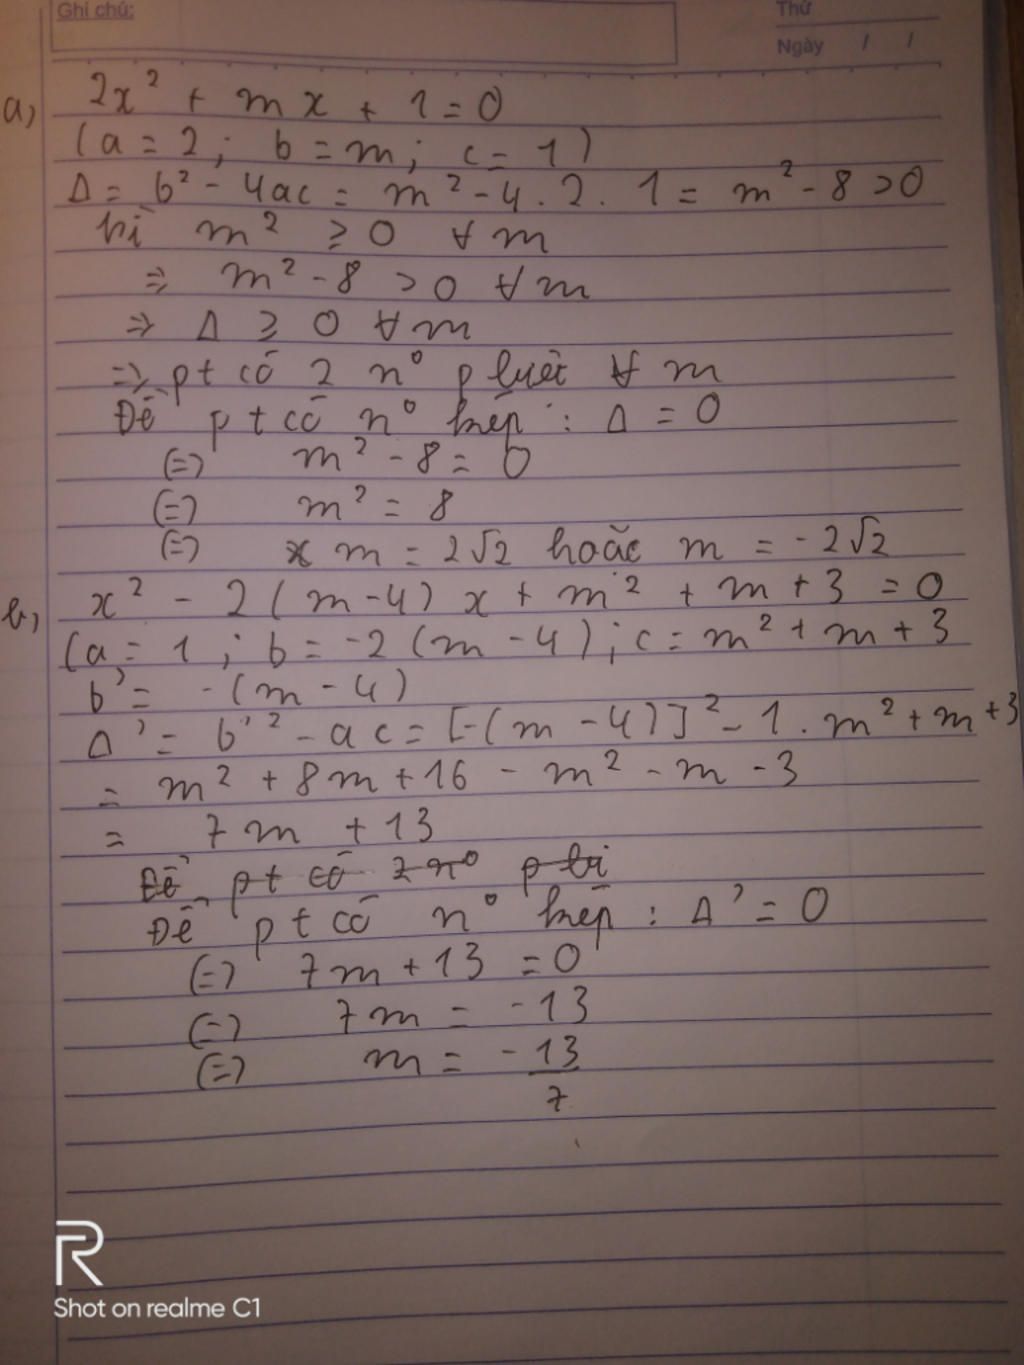 Ghi chú:
Thứ
Ngày / /
a, 2x² + mx + 1 = 0
(a = 2; b = m; c = 1)
Δ = b² - 4ac = m² - 4 . 2 . 1 = m² - 8 > 0
Vì m² ≥ 0 ∀ m
=> m² - 8 > 0 ∀ m
=> Δ ≥ 0 ∀ m
=> pt có 2 n⁰ p biệt ∀ m
Để pt có n⁰ kép : Δ = 0
(=) m² - 8 = 0
(=) m² = 8
(=) m = 2√2 hoặc m = - 2√2
b, x² - 2(m-4)x + m² + m + 3 = 0
(a = 1; b = -2(m - 4); c = m² + m + 3
b' = -(m - 4)
Δ' = b'² - ac = [-(m - 4)]² - 1 . m² + m + 3
= m² + 8m + 16 - m² - m - 3
= 7m + 13
Để pt có 2 n⁰ p bi
Để pt có n⁰ kép : Δ' = 0
(=) 7m + 13 = 0
(=) 7m = -13
(=) m = -13/7
R
Shot on realme C1